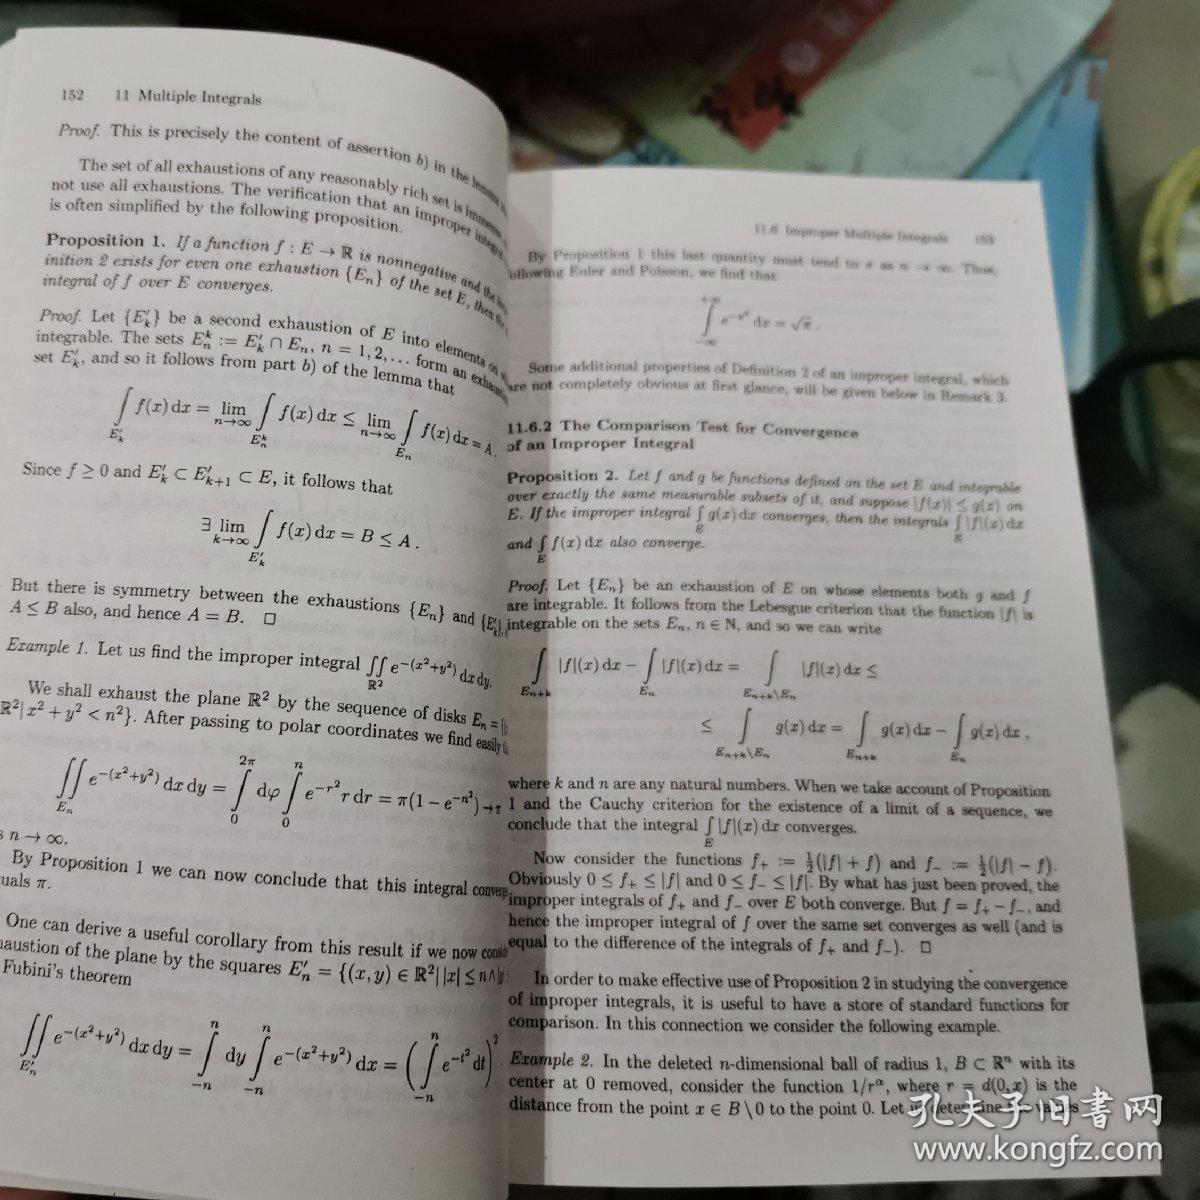 152 11 Multiple Integrals
Proof. This is precisely the content of assertion b) in the
The set of all exhaustions of any reasonably rich set is
not use all exhaustions. The verification that an improper
is often simplified by the following proposition.
Proposition 1. If a function f : E → ℝ is nonnegative and the
inition 2 exists for even one exhaustion {Eₙ} of the set E, then
integral of f over E converges.
Proof. Let {E′ₖ} be a second exhaustion of E into elements
integrable. The sets Eₙᵏ := E′ₖ ∩ Eₙ, n = 1, 2, ... form an
set E′ₖ, and so it follows from part b) of the lemma that
∫_{E′ₖ} f(x) dx = lim_{n→∞} ∫_{Eₙᵏ} f(x) dx ≤ lim_{n→∞} ∫_{Eₙ} f(x) dx = A.
Since f ≥ 0 and E′ₖ ⊂ E′ₖ₊₁ ⊂ E, it follows that
∃ lim_{k→∞} ∫_{E′ₖ} f(x) dx = B ≤ A .
But there is symmetry between the exhaustions {Eₙ} and {E′ₖ},
A ≤ B also, and hence A = B. □
Example 1. Let us find the improper integral ∬_{ℝ²} e^{−(x²+y²)} dx dy.
We shall exhaust the plane ℝ² by the sequence of disks Eₙ =
ℝ²| x² + y² < n²}. After passing to polar coordinates we find easily
∬_{Eₙ} e^{−(x²+y²)} dx dy = ∫_0^{2π} dφ ∫_0^n e^{−r²} r dr = π(1 − e^{−n²}) → π
s n → ∞.
By Proposition 1 we can now conclude that this integral
uals π.
One can derive a useful corollary from this result if we now
haustion of the plane by the squares E′ₙ = {(x, y) ∈ ℝ²| |x| ≤ n ∧ |y|
Fubini's theorem
∬_{E′ₙ} e^{−(x²+y²)} dx dy = ∫_{−n}^n dy ∫_{−n}^n e^{−(x²+y²)} dx = (∫_{−n}^n e^{−t²} dt)² .
11.6 Improper Multiple Integrals 153
By Proposition 1 this last quantity must tend to π as n → ∞. Thus,
following Euler and Poisson, we find that
∫_{−∞}^{+∞} e^{−x²} dx = √π .
Some additional properties of Definition 2 of an improper integral, which
are not completely obvious at first glance, will be given below in Remark 3.
11.6.2 The Comparison Test for Convergence
of an Improper Integral
Proposition 2. Let f and g be functions defined on the set E and integrable
over exactly the same measurable subsets of it, and suppose |f(x)| ≤ g(x) on
E. If the improper integral ∫_E g(x) dx converges, then the integrals ∫_E |f|(x) dx
and ∫_E f(x) dx also converge.
Proof. Let {Eₙ} be an exhaustion of E on whose elements both g and f
are integrable. It follows from the Lebesgue criterion that the function |f| is
integrable on the sets Eₙ, n ∈ ℕ, and so we can write
∫_{Eₙ₊ₖ} |f|(x) dx − ∫_{Eₙ} |f|(x) dx = ∫_{Eₙ₊ₖ\Eₙ} |f|(x) dx ≤
≤ ∫_{Eₙ₊ₖ\Eₙ} g(x) dx = ∫_{Eₙ₊ₖ} g(x) dx − ∫_{Eₙ} g(x) dx ,
where k and n are any natural numbers. When we take account of Proposition
1 and the Cauchy criterion for the existence of a limit of a sequence, we
conclude that the integral ∫_E |f|(x) dx converges.
Now consider the functions f₊ := ½(|f| + f) and f₋ := ½(|f| − f).
Obviously 0 ≤ f₊ ≤ |f| and 0 ≤ f₋ ≤ |f|. By what has just been proved, the
improper integrals of f₊ and f₋ over E both converge. But f = f₊ − f₋, and
hence the improper integral of f over the same set converges as well (and is
equal to the difference of the integrals of f₊ and f₋). □
In order to make effective use of Proposition 2 in studying the convergence
of improper integrals, it is useful to have a store of standard functions for
comparison. In this connection we consider the following example.
Example 2. In the deleted n-dimensional ball of radius 1, B ⊂ ℝⁿ with its
center at 0 removed, consider the function 1/r^α, where r = d(0, x) is the
distance from the point x ∈ B \ 0 to the point 0. Let us determine the values
孔夫子旧书网
www.kongfz.com